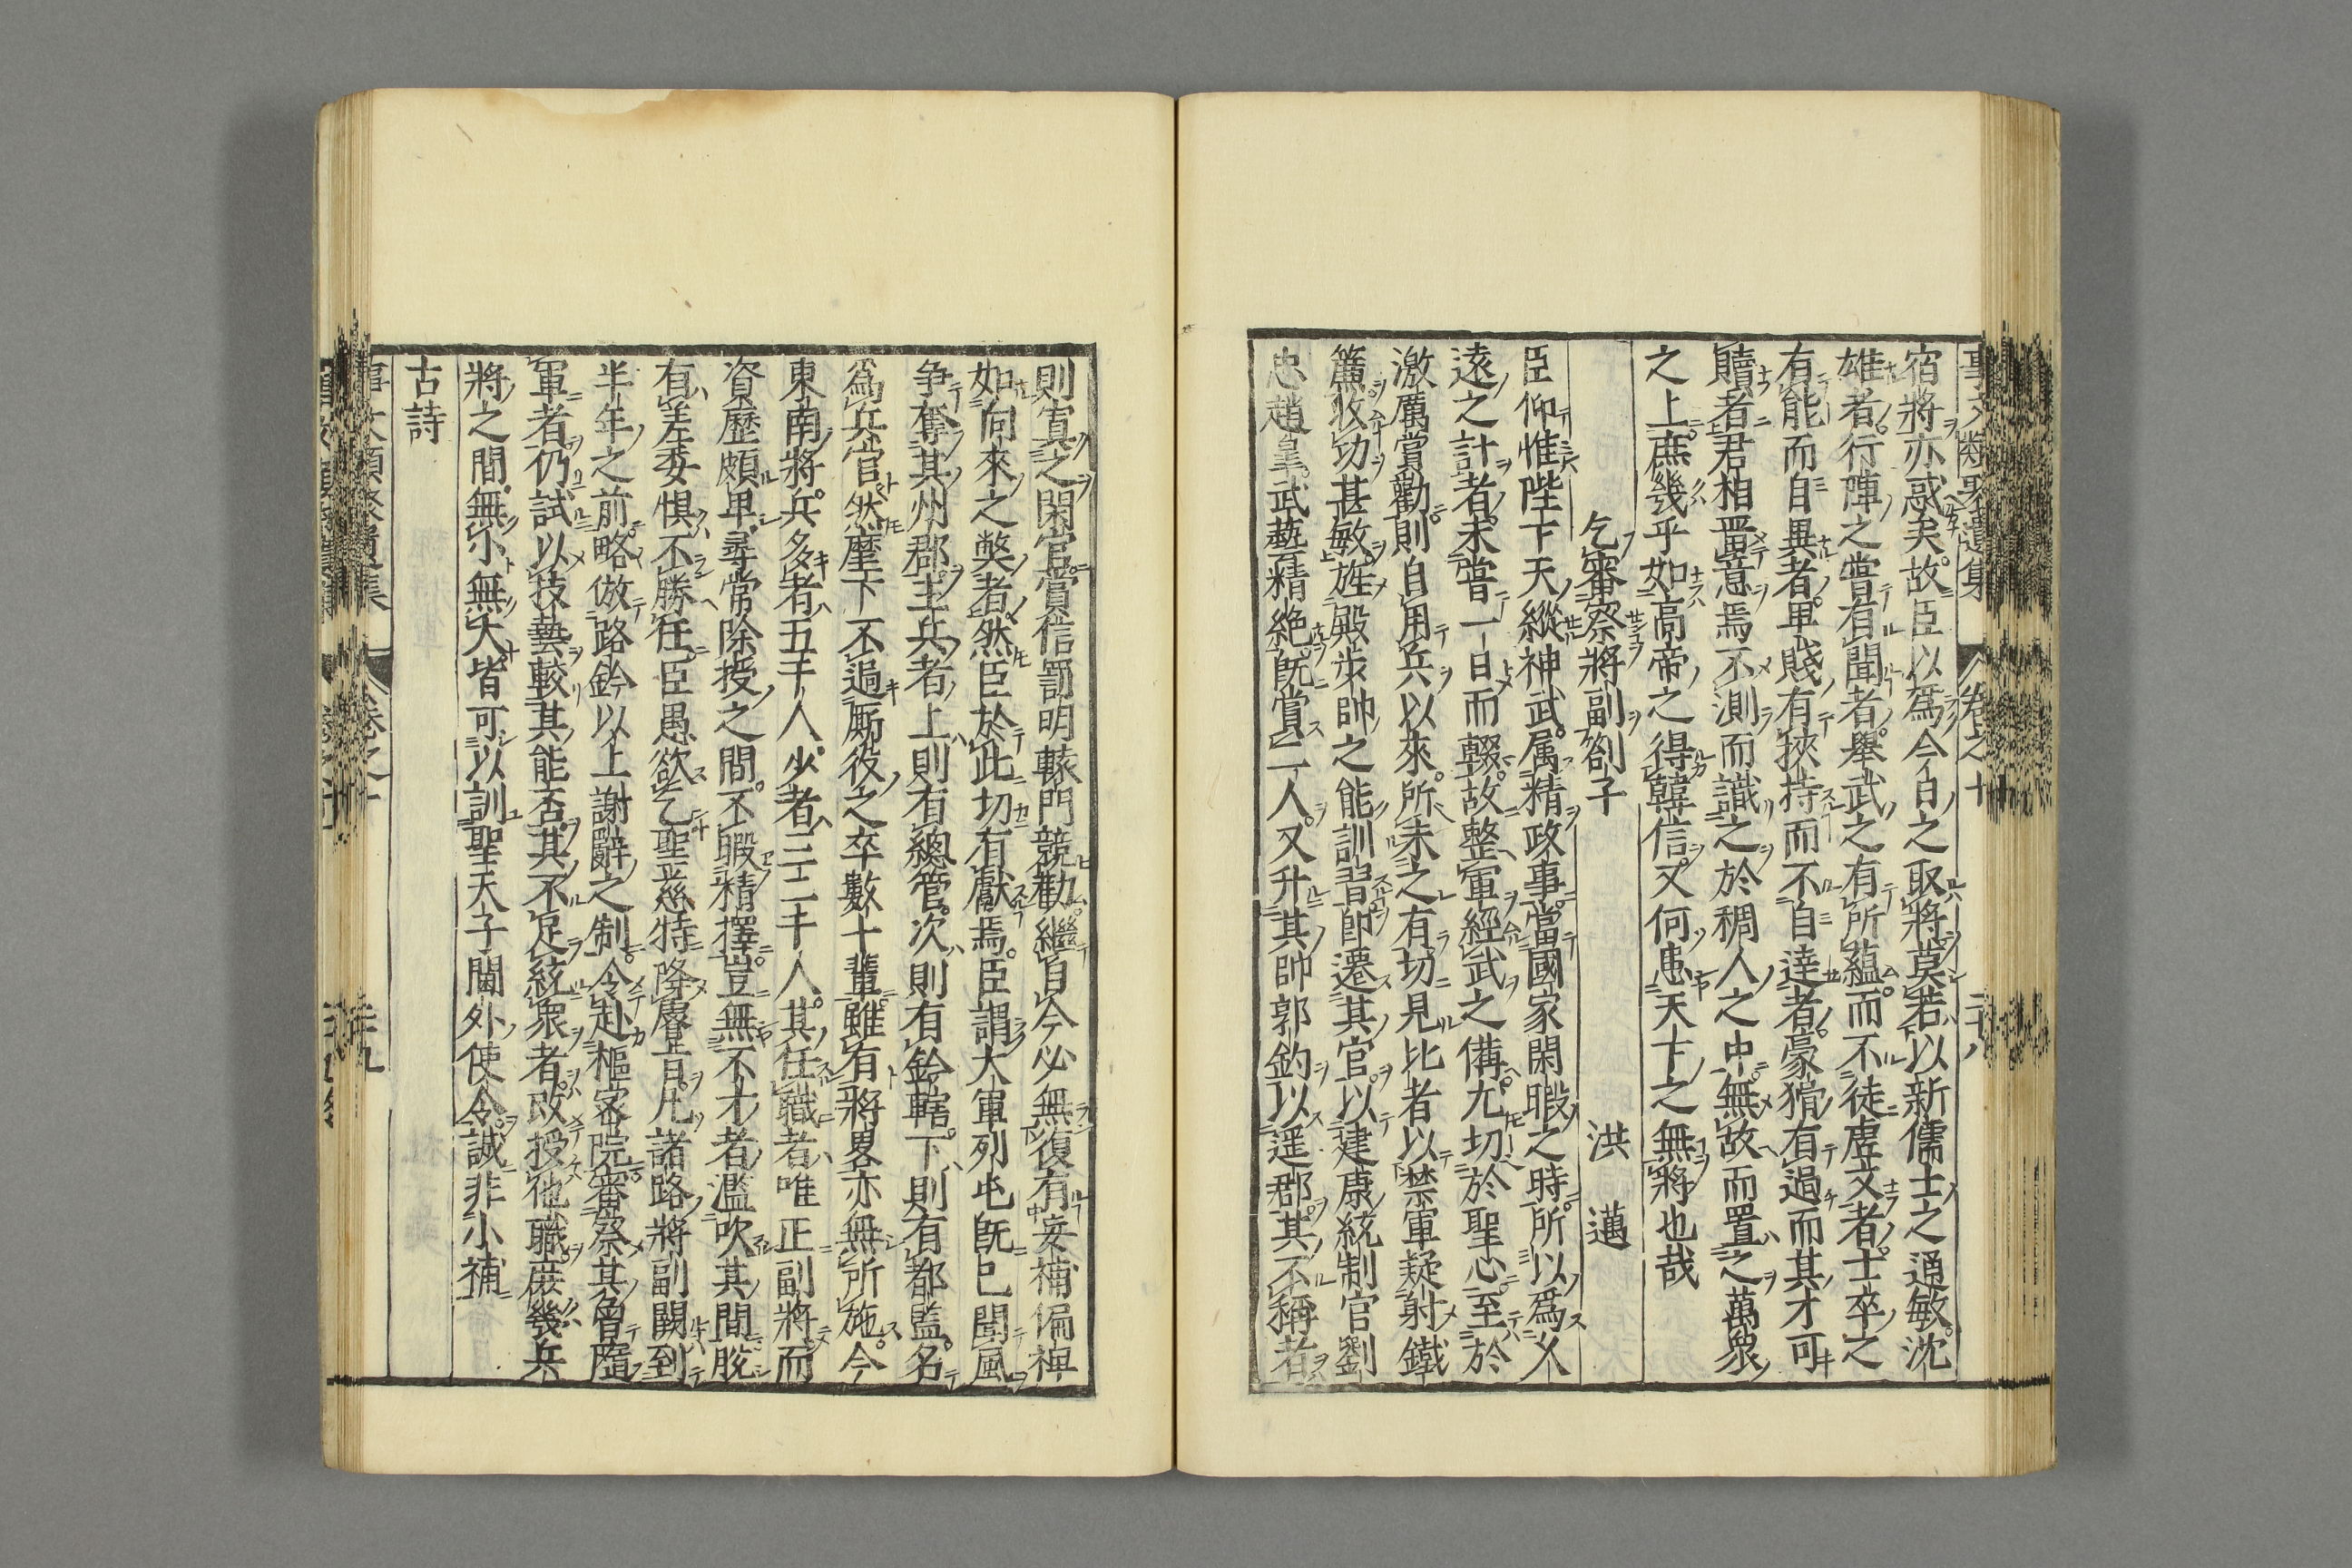 宿將亦惑矣故臣以爲今日之取將莫若以新儒士之通敏沈
雄者行陣之嘗有聞者舉武之有所蘊而不徒虗文者士卒之
有能而自異者卑賤有挾持而不自達者豪猾有過而其才可
贖者君相置意焉不測而識之於稠人之中無故而置之萬衆
之上庶幾乎如高帝之得韓信又何患天下之無將也哉
乞審察將副劄子 洪邁
臣仰惟陛下天縱神武厲精政事當國家閑暇之時所以爲乂
遠之計者未嘗一日而輟故整軍經武之備尤切於聖心至於
激厲賞勸則自用兵以來所未之有切見比者以禁軍疑射鐵
簾收功甚敏旌殿步帥之能訓習卽遷其官以建康統制官劉
忠趙皇武藝精絶旣賞二人又升其帥郭釣以遥郡其不稱者
則寘之閑官賞信罰明轅門競勸繼自今必無復有妄補偏裨
如向來之獘者然臣於此切有獻焉臣謂大軍列屯旣已聞風
争奪其州郡主兵者上則有總管次則有鈐轄下則有都監名
爲兵官然麾下不過厮役之卒數十輩雖有將畧亦無所施今
東南將兵多者五千人少者三二千人其任職者唯正副將而
資歷頗卑尋常除授之間不暇精擇豈無不才者濫吹其間脫
有差委惧不勝任臣愚欲乞聖慈特降睿旨凡諸路將副闕到
半年之前略倣路鈐以上謝辭之制令赴樞密院審察其魯隨
軍者仍試以技藝較其能否其不足統衆者改授他職庶幾兵
將之間無小無大皆可以訓聖天子閫外使令誠非小補
古詩